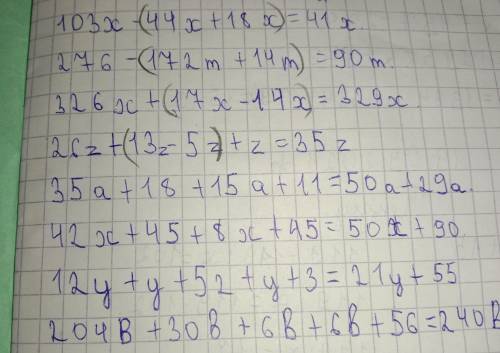 103x -(44x+18x)=41x.
276 -(172m+14m)=90m.
326x+(17x-14x)=329x
26z+(13z-5z)+z=35z
35a+18+15a+11=50a+29a.
42x+45+8x+45=50x+90.
12y+y+5z+y+3=21y+55
204B+30B+6B+6B+56=240B